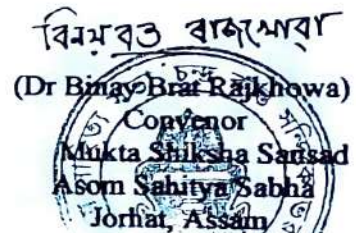 বিনয়ব্রত ৰাজখোৱা
(Dr Binay Brat Rajkhowa)
Convenor
Mukta Shiksha Sansad
Asom Sahitya Sabha
Jorhat, Assam